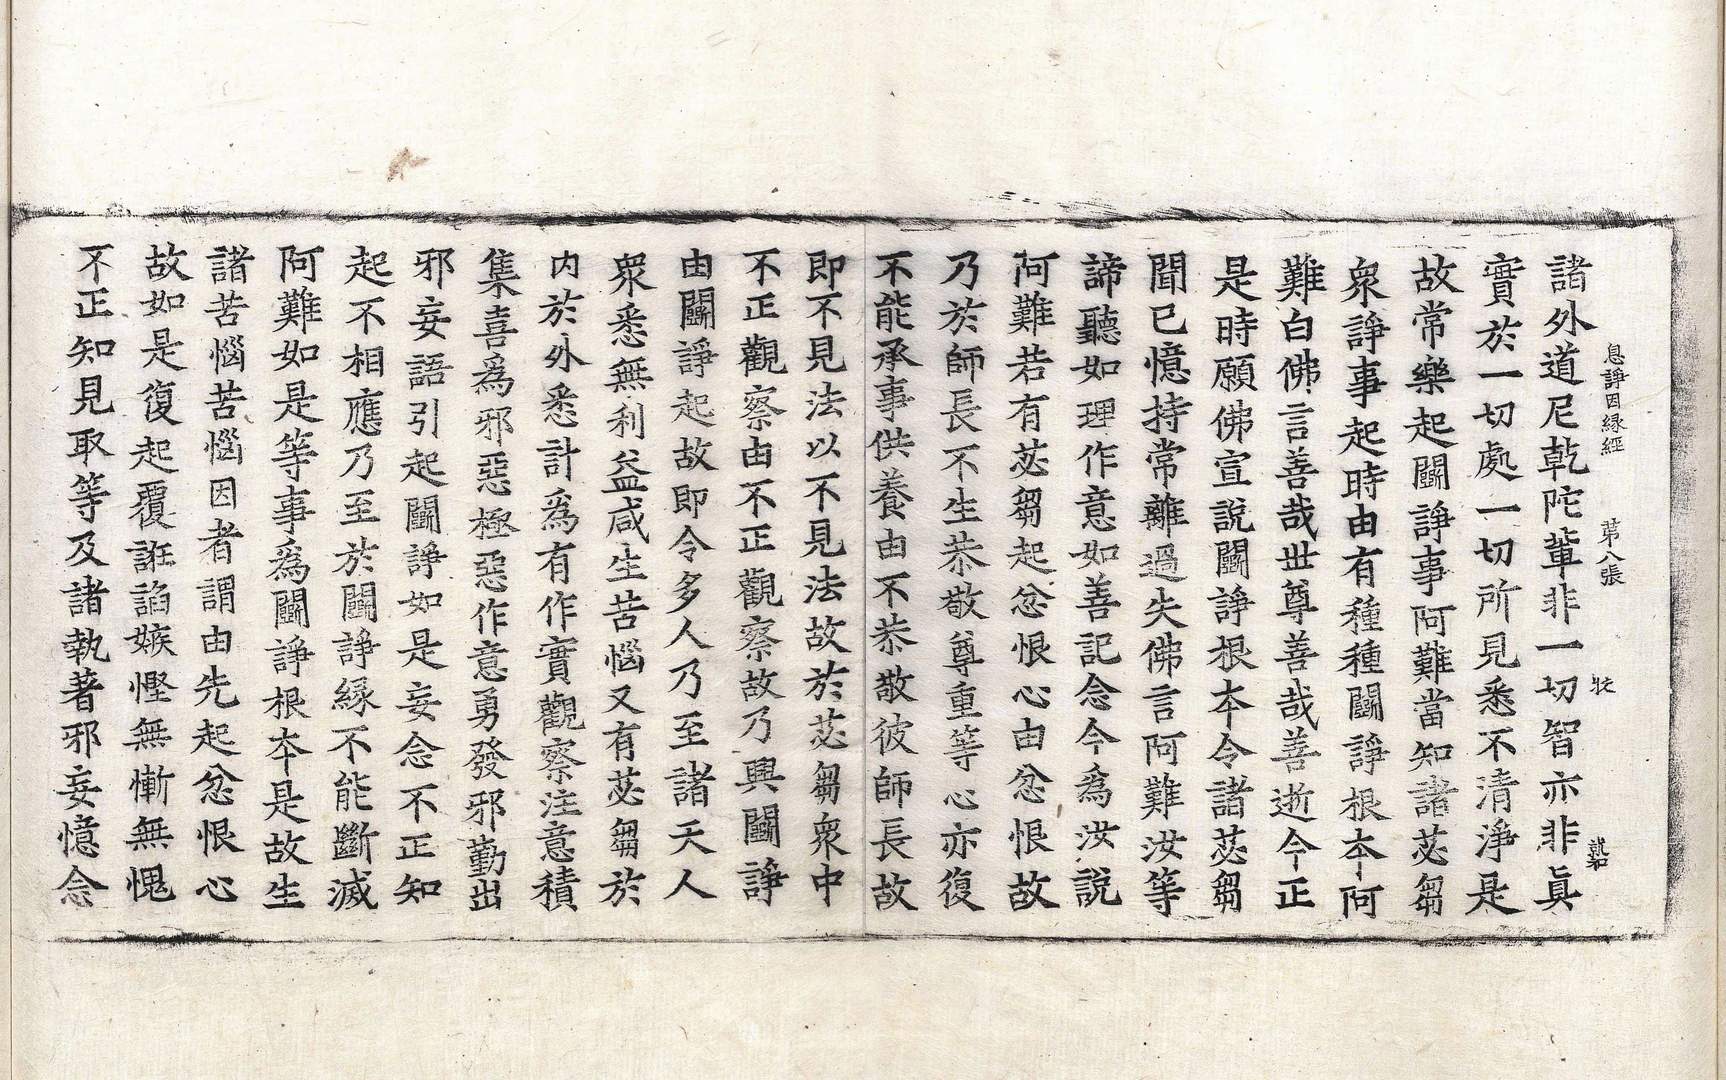 息諍因縁經 第八張 壯
諸外道尼乾陀輩非一切智亦非眞
實於一切處一切所見悉不清淨是
故常樂起鬪諍事阿難當知諸苾芻
衆諍事起時由有種種鬪諍根本阿
難白佛言善哉世尊善哉善逝今正
是時願佛宣說鬪諍根本令諸苾芻
聞已憶持常離過失佛言阿難汝等
諦聽如理作意如善記念今為汝說
阿難若有苾芻起忿恨心由忿恨故
乃於師長不生恭敬尊重等心亦復
不能承事供養由不恭敬彼師長故
即不見法以不見法故於苾芻衆中
不正觀察由不正觀察故乃興鬪諍
由鬪諍起故即令多人乃至諸天人
衆悉無利益咸生苦惱又有苾芻於
内於外悉計為有作實觀察注意積
集喜爲邪惡極惡作意勇發邪勤出
邪妄語引起鬪諍如是妄念不正知
起不相應乃至於鬪諍縁不能斷滅
阿難如是等事為鬪諍根本是故生
諸苦惱苦惱因者謂由先起忿恨心
故如是復起覆誑諂嫉慳無慚無愧
不正知見取等及諸執著邪妄憶念